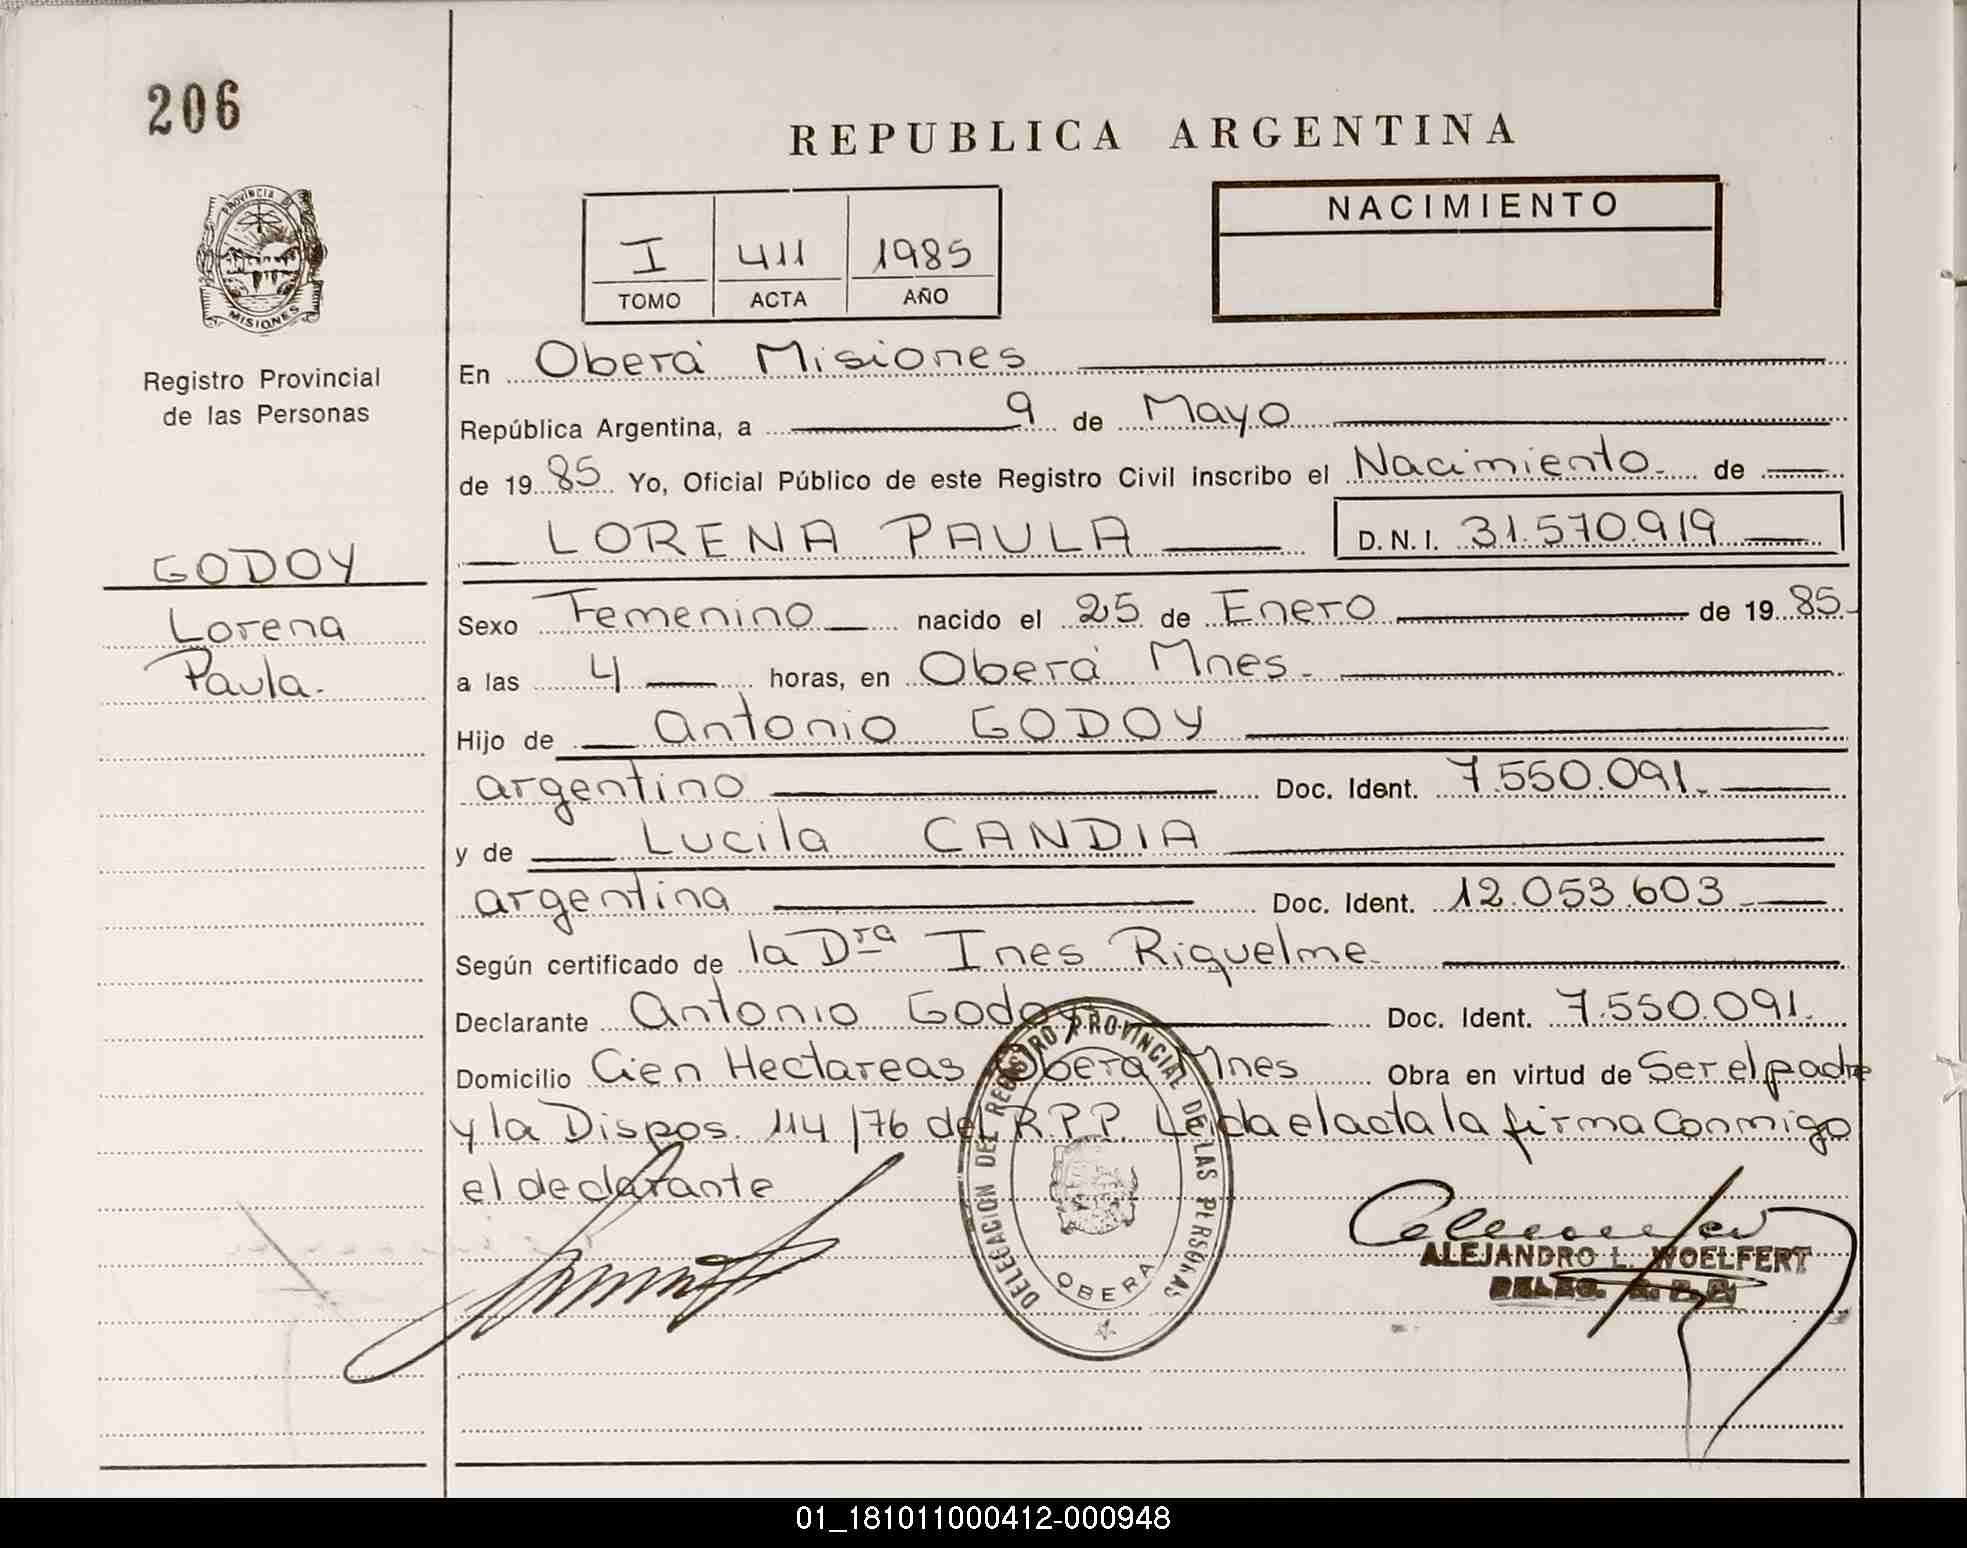 206
PROVINCIA DE
MISIONES
Registro Provincial
de las Personas
GODOY
Lorena
Paula.
REPUBLICA ARGENTINA
I 411 1985
TOMO ACTA AÑO
NACIMIENTO
En Oberá Misiones
República Argentina, a 9 de Mayo
de 19 85 Yo, Oficial Público de este Registro Civil inscribo el Nacimiento de
LORENA PAULA D.N.I. 31.570.919
Sexo Femenino nacido el 25 de Enero de 19 85
a las 4 horas, en Oberá Mnes.
Hijo de Antonio GODOY
argentino Doc. Ident. 7.550.091.
y de Lucila CANDIA
argentina Doc. Ident. 12.053.603
Según certificado de la Dra Ines Riquelme
Declarante Antonio Godoy Doc. Ident. 7.550.091.
Domicilio Cien Hectareas Oberá Mnes Obra en virtud de Ser el padre
y la Dispos. 114/76 del R.P.P. Leida el acta la firma conmigo
el declarante
DELEGACION DEL REGISTRO PROVINCIAL DE LAS PERSONAS
OBERA
ALEJANDRO L. WOELFERT
DELEG. R. P. P.
01_181011000412-000948